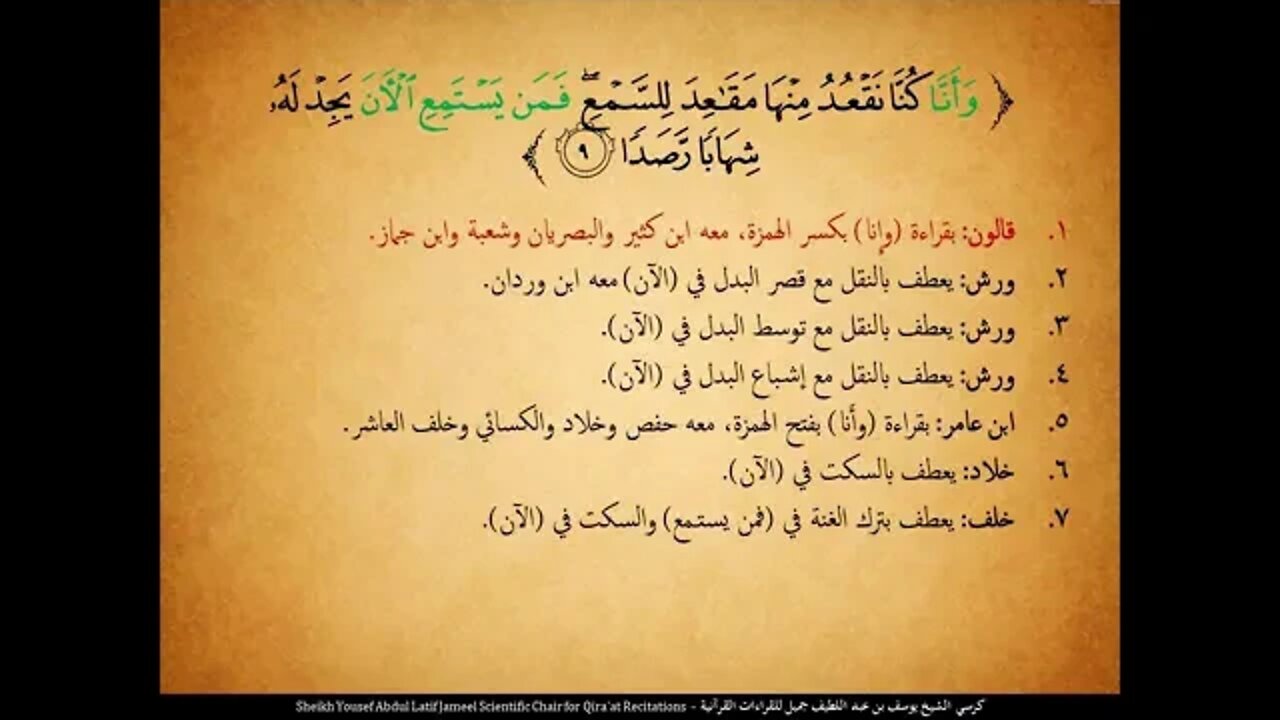 ﴿ وَأَنَّا كُنَّا نَقۡعُدُ مِنۡهَا مَقَٰعِدَ لِلسَّمۡعِۖ فَمَن يَسۡتَمِعِ ٱلۡأٓنَ يَجِدۡ لَهُۥ
شِهَابٗا رَّصَدٗا ٩ ﴾
١. قالون: بقراءة (وإنا) بكسر الهمزة، معه ابن كثير والبصريان وشعبة وابن جماز.
٢. ورش: يعطف بالنقل مع قصر البدل في (الآن) معه ابن وردان.
٣. ورش: يعطف بالنقل مع توسط البدل في (الآن).
٤. ورش: يعطف بالنقل مع إشباع البدل في (الآن).
٥. ابن عامر: بقراءة (وأنا) بفتح الهمزة، معه حفص وخلاد والكسائي وخلف العاشر.
٦. خلاد: يعطف بالسكت في (الآن).
٧. خلف: يعطف بترك الغنة في (فمن يستمع) والسكت في (الآن).
كرسي الشيخ يوسف بن عبد اللطيف جميل للقراءات القرآنية – Sheikh Yousef Abdul Latif Jameel Scientific Chair for Qira'at Recitations